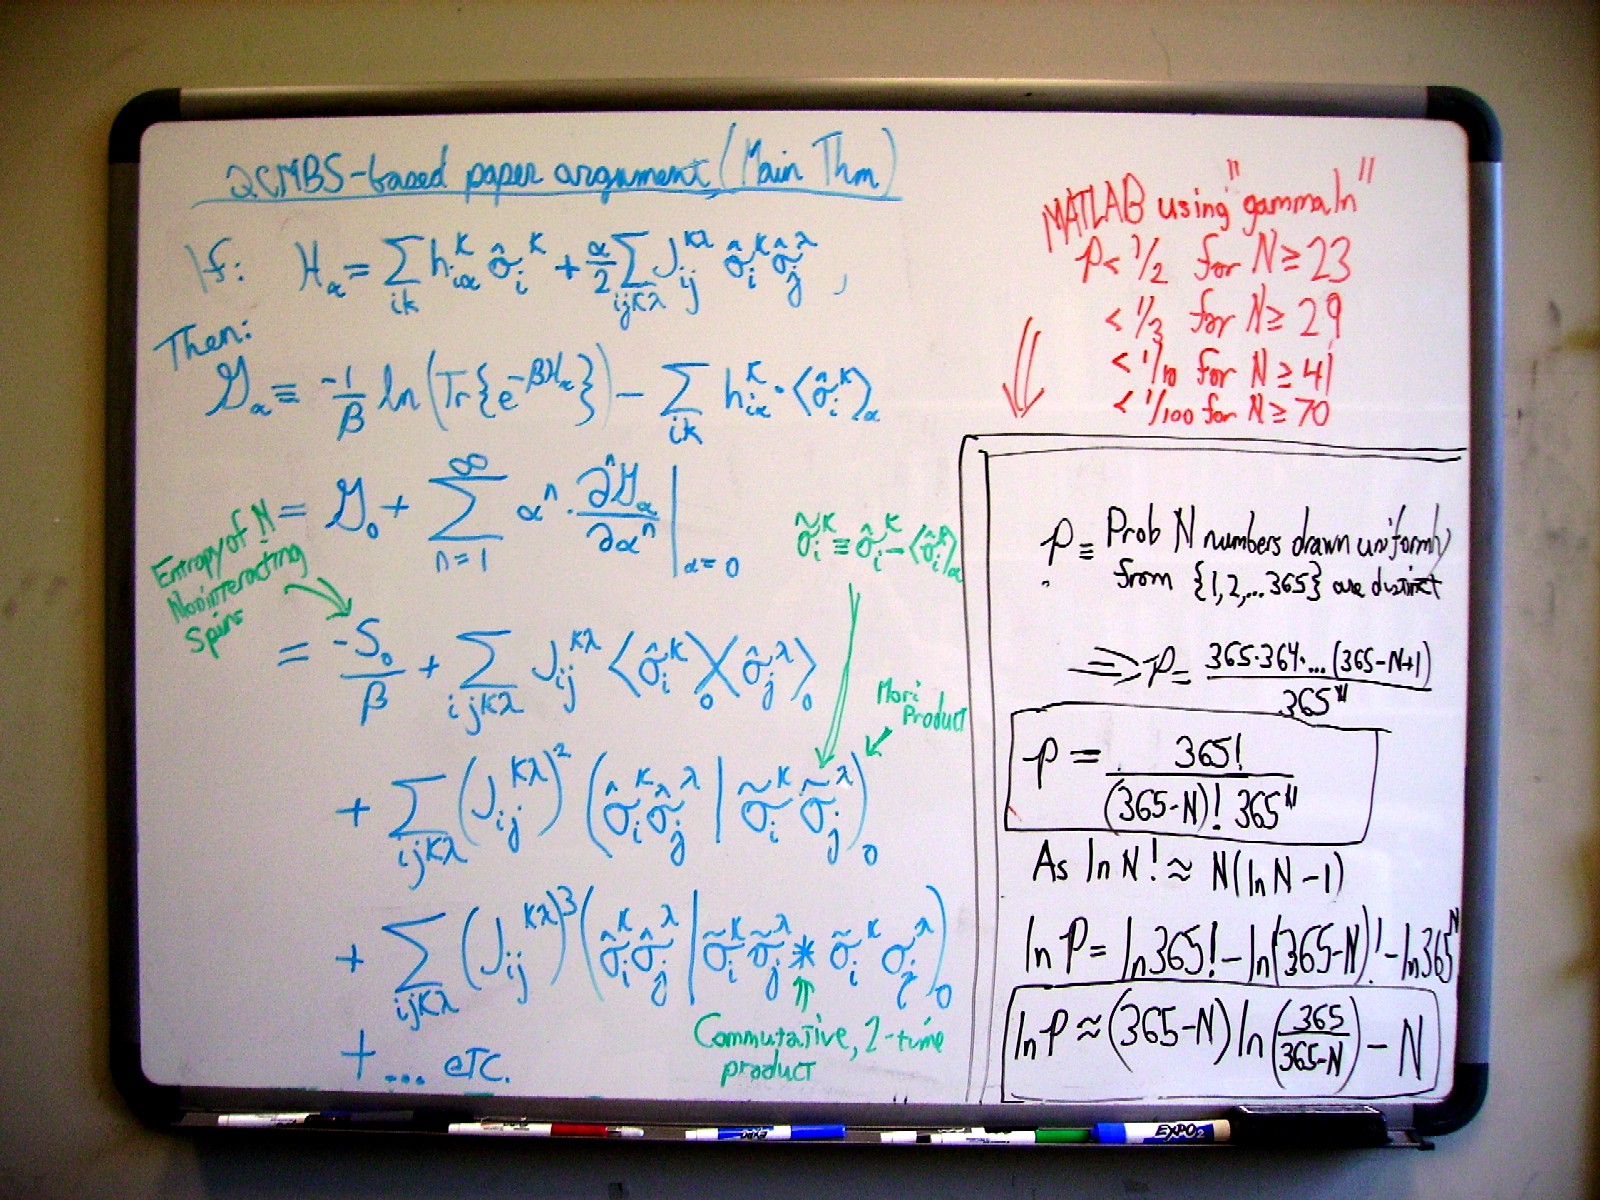 QCMBS-based paper argument (Main Thm)
If: H_α = Σ_{ik} h_{iα}^K σ̂_i^K + α/2 Σ_{ijKλ} J_{ij}^{Kλ} σ̂_i^K σ̂_j^λ ,
Then:
𝒢_α ≡ -1/β ln(Tr{e^{-βH_α}}) − Σ_{ik} h_{iα}^K · ⟨σ̂_i^K⟩_α
= 𝒢_0 + Σ_{n=1}^∞ α^n · ∂^n𝒢_α/∂α^n |_{α=0}
Entropy of N
Noninteracting
Spins
σ̃_i^K ≡ σ̂_i^K − ⟨σ̂_i^K⟩_α
= -S_0/β + Σ_{ijKλ} J_{ij}^{Kλ} ⟨σ̂_i^K⟩_0⟨σ̂_j^λ⟩_0
Mori
Product
+ Σ_{ijKλ} (J_{ij}^{Kλ})^2 (σ̂_i^K σ̂_j^λ | σ̃_i^K σ̃_j^λ)_0
+ Σ_{ijKλ} (J_{ij}^{Kλ})^3 (σ̂_i^K σ̂_j^λ | σ̃_i^K σ̃_j^λ * σ̃_i^K σ_j^λ)_0
Commutative, 2-time
product
+ ... etc.
MATLAB using "gammaln"
p < 1/2 for N ≥ 23
< 1/3 for N ≥ 29
< 1/10 for N ≥ 41
< 1/100 for N ≥ 70
p ≡ Prob N numbers drawn uniformly
from {1,2,...365} are distinct
⇒ p = 365·364·...(365-N+1)/365^N
p = 365!/(365-N)! 365^N
As ln N! ≈ N(ln N − 1)
ln p = ln365! − ln(365-N)! − ln365^N
ln p ≈ (365-N) ln(365/365-N) − N
EXPO
EXPO2